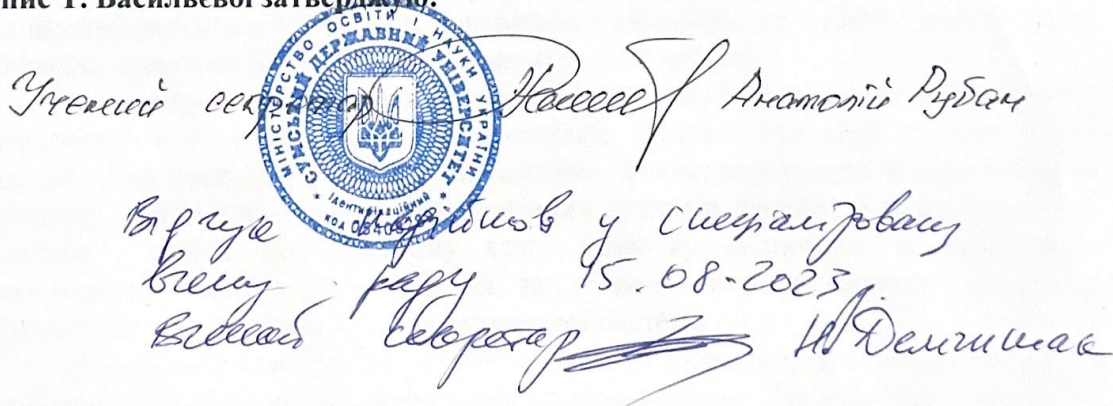 пис Т. Васильєвої затверджую.
Учений секретар Анатолій Рубан
МІНІСТЕРСТВО ОСВІТИ І НАУКИ УКРАЇНИ
СУМСЬКИЙ ДЕРЖАВНИЙ УНІВЕРСИТЕТ
Ідентифікаційний
код
Відгук надійшов у спеціалізовану
вчену раду 15.08.2023р.
Вчений секретар Н. Демчишак